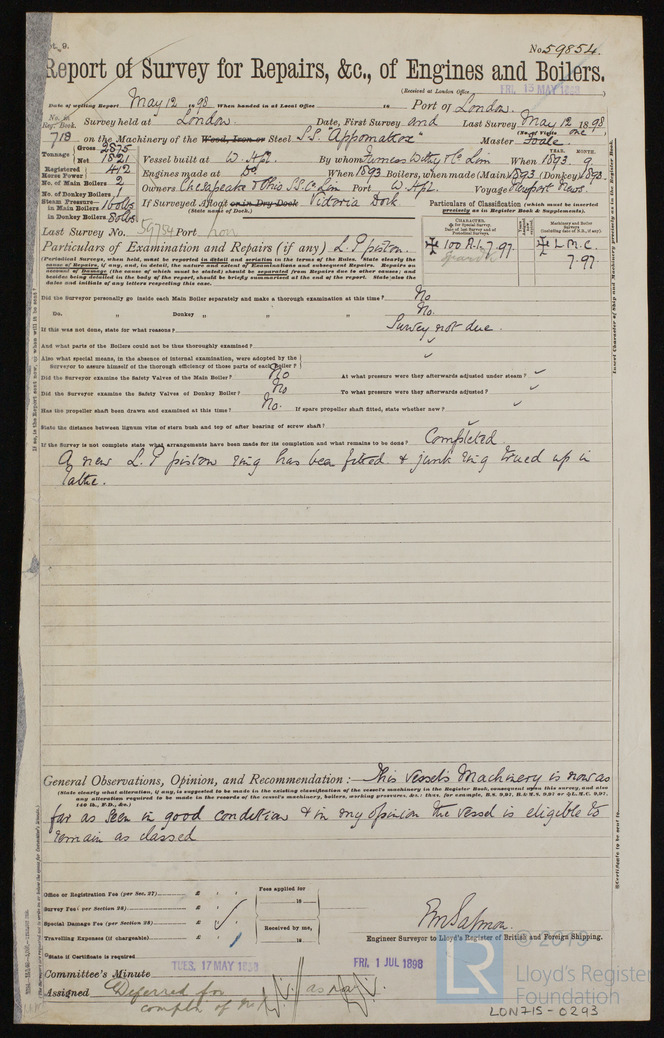 No. 59854.
Report of Survey for Repairs, &c., of Engines and Boilers.
(Received at London Office FRI. 13 MAY 1898 )
Date of writing Report May 12 1898 When handed in at Local Office 18 Port of London.
No. in Reg. Book. Survey held at London Date, First Survey and Last Survey May 12 1898
(No. of Visits one )
718 on the Machinery of the Wood, Iron or Steel S.S. "Appomattox" Master
Tonnage Gross 2875
Net 1821
Vessel built at W. Hpl. By whom Furness Withy & Co Lim When 1893. 9
YEAR. MONTH.
Registered Horse Power 412
Engines made at Do When 1893 Boilers, when made (Main) 1893 (Donkey) 1893
No. of Main Boilers 2
No. of Donkey Boilers 1
Owners Chesapeake & Ohio S.S. Co Lim Port W. Hpl. Voyage Newport News.
Steam Pressure in Main Boilers 160 lbs
in Donkey Boilers 80 lbs
If Surveyed Afloat or in Dry Dock Victoria Dock
(State name of Dock.)
Particulars of Classification (which must be inserted precisely as in Register Book & Supplements).
Last Survey No. 59784 Port Lon
CHARACTER.
100 A.1. 7.97
Machinery and Boiler Surveys (including date of N.B., if any).
L.M.C. 7.97.
Particulars of Examination and Repairs (if any) L.P. piston.
(Periodical Surveys, when held, must be reported in detail and seriatim in the terms of the Rules. State clearly the
cause of Repairs, if any, and, in detail, the nature and extent of Examinations and subsequent Repairs. Repairs on
account of Damage (the cause of which must be stated) should be separated from Repairs due to other causes; and
besides being detailed in the body of the report, should be briefly summarised at the end of the report. State also the
dates and initials of any letters respecting this case.
Did the Surveyor personally go inside each Main Boiler separately and make a thorough examination at this time? No
Do. " Donkey " " " No.
If this was not done, state for what reasons? Survey not due.
And what parts of the Boilers could not be thus thoroughly examined?
Also what special means, in the absence of internal examination, were adopted by the
Surveyor to assure himself of the thorough efficiency of those parts of each Boiler?
Did the Surveyor examine the Safety Valves of the Main Boiler? No At what pressure were they afterwards adjusted under steam?
Did the Surveyor examine the Safety Valves of Donkey Boiler? No To what pressure were they afterwards adjusted?
Has the propeller shaft been drawn and examined at this time? No. If spare propeller shaft fitted, state whether new?
State the distance between lignum vitæ of stern bush and top of after bearing of screw shaft?
If the Survey is not complete state what arrangements have been made for its completion and what remains to be done? Completed
A new L.P piston ring has been fitted & junk ring trued up in
lathe.
General Observations, Opinion, and Recommendation:— This Vessels Machinery is now as
(State clearly what alteration, if any, is suggested to be made in the existing classification of the vessel's machinery in the Register Book, consequent upon this survey, and also
any alteration required to be made in the records of the vessel's machinery, boilers, working pressures, &c.: thus, for example, B.S. 9,97, B.&M.S. 9,97 or L.M.C. 9,97.
140 lb., F.D., &c.)
far as seen in good condition & in my opinion the vessel is eligible to
remain as classed
Office or Registration Fee (per Sec. 27) £
Survey Fee (per Section 28) £
Special Damage Fee (per Section 28) £
Travelling Expenses (if chargeable) £
Fees applied for
18
Received by me,
18
Engineer Surveyor to Lloyd's Register of British and Foreign Shipping.
State if Certificate is required
Committee's Minute TUES. 17 MAY 1898 FRI. 1 JUL 1898
Assigned Deferred for as now
© 2019
LR
Lloyd's Register
Foundation
LON715-0293